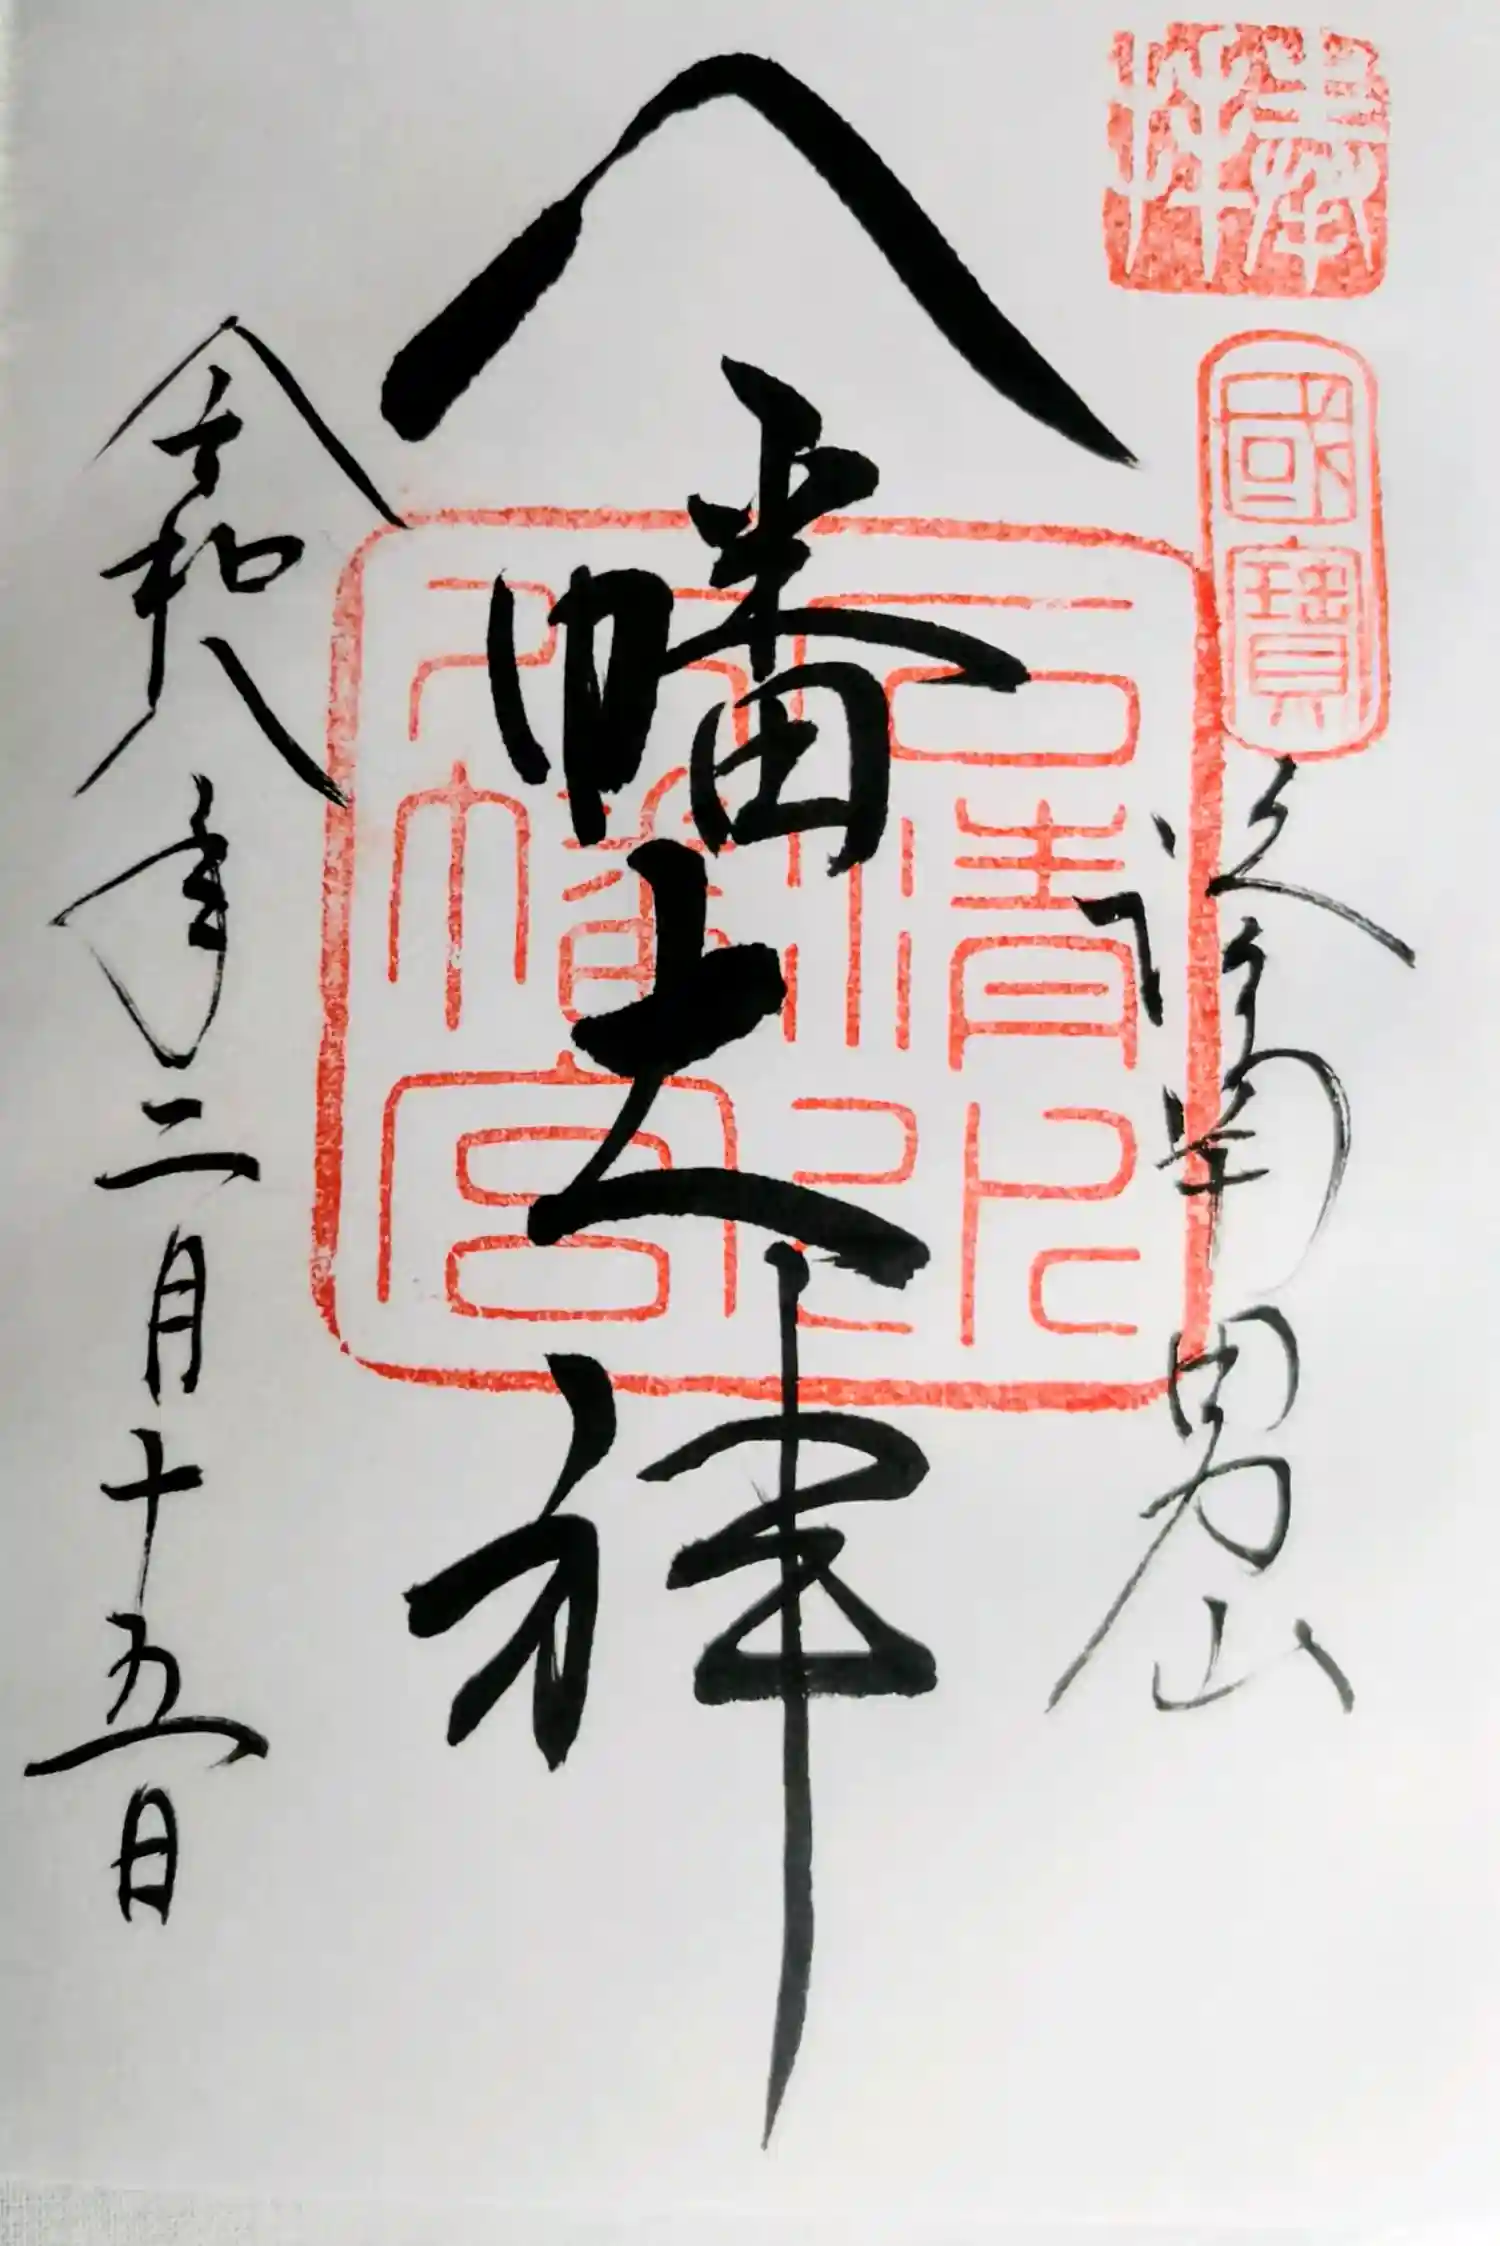 奉拝
國寶
洛南男山
八幡大神
石清水八幡宮
令和八年二月十五日